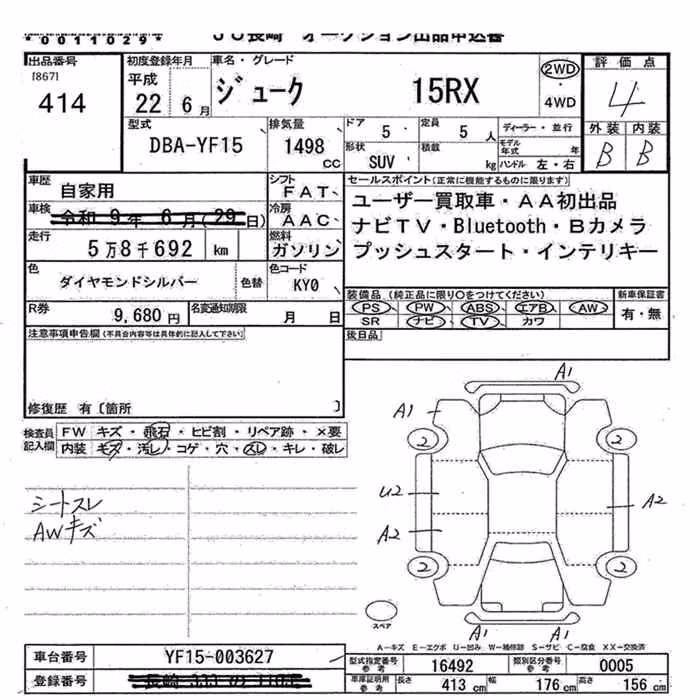 *0011029* JU長崎 オークション出品申込書
出品番号 [867] 414
初度登録年月 平成 22年 6月
車名・グレード ジューク 15RX
2WD・4WD
評価点 4
外装 B 内装 B
型式 DBA-YF15
排気量 1498 CC
ドア 5 定員 5人
形状 SUV 積載 kg
ディーラー・並行
モデル年式 年
ハンドル 左・右
車歴 自家用
シフト FAT
車検 令和 9年 6月(29日)
冷房 AAC
走行 5万8千692 km
燃料 ガソリン
色 ダイヤモンドシルバー 色替
色コード KY0
R券 9,680円
名変通知期限 月 日
セールスポイント(正常に機能するものに限ります)
ユーザー買取車・AA初出品
ナビTV・Bluetooth・Bカメラ
プッシュスタート・インテリキー
装備品(純正品に限り○をつけてください)
PS PW ABS エアB AW
SR ナビ TV カワ
新車保証書 有・無
後日品
注意事項申告欄(不具合内容等は具体的に記入して下さい)
修復歴 有〔箇所 〕
検査員記入欄
FW キズ・飛石・ヒビ割・リペア跡・×要
内装 キズ・汚レ・コゲ・穴・スレ・キレ・破レ
シートスレ
AWキズ
A1
A1
2 2
U2
A2
A2
2 2
A1 A1
スペア
A-キズ E-エクボ U-凹み W-補修跡 S-サビ C-腐食 XX-交換済
車台番号 YF15-003627
登録番号 長崎 333 の
型式指定番号 参考 16492
類別区分番号 参考 0005
車庫証明用 参考 長さ 413cm 幅 176cm 高さ 156cm